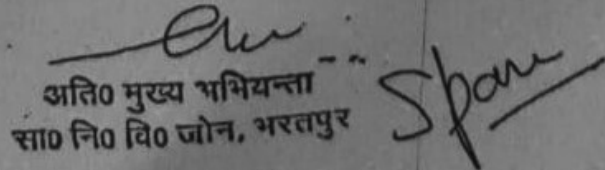 अति0 मुख्य अभियन्ता
सा0 नि0 वि0 जोन, भरतपुर